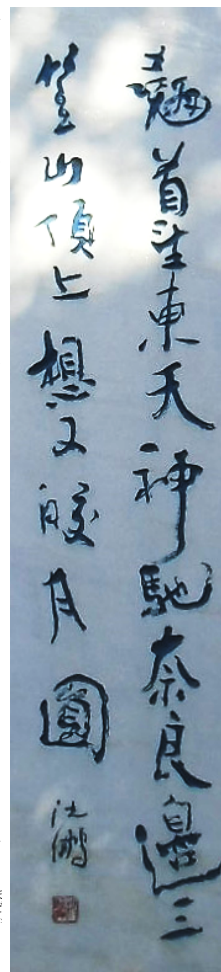 翹首望東天神馳奈良邊三
笠山頂上想又皎月圓 沈鵬